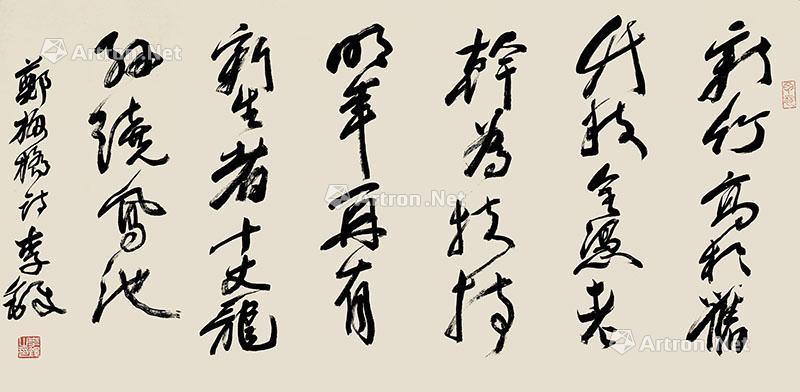 新竹高於舊
竹枝全憑老
幹為扶持
明年再有
新生者十丈龍
孫繞鳳池
鄭板橋詩 李鐸
Artron.Net
Artron.Net
Artron.Net
Artron.Net
Artron.Net